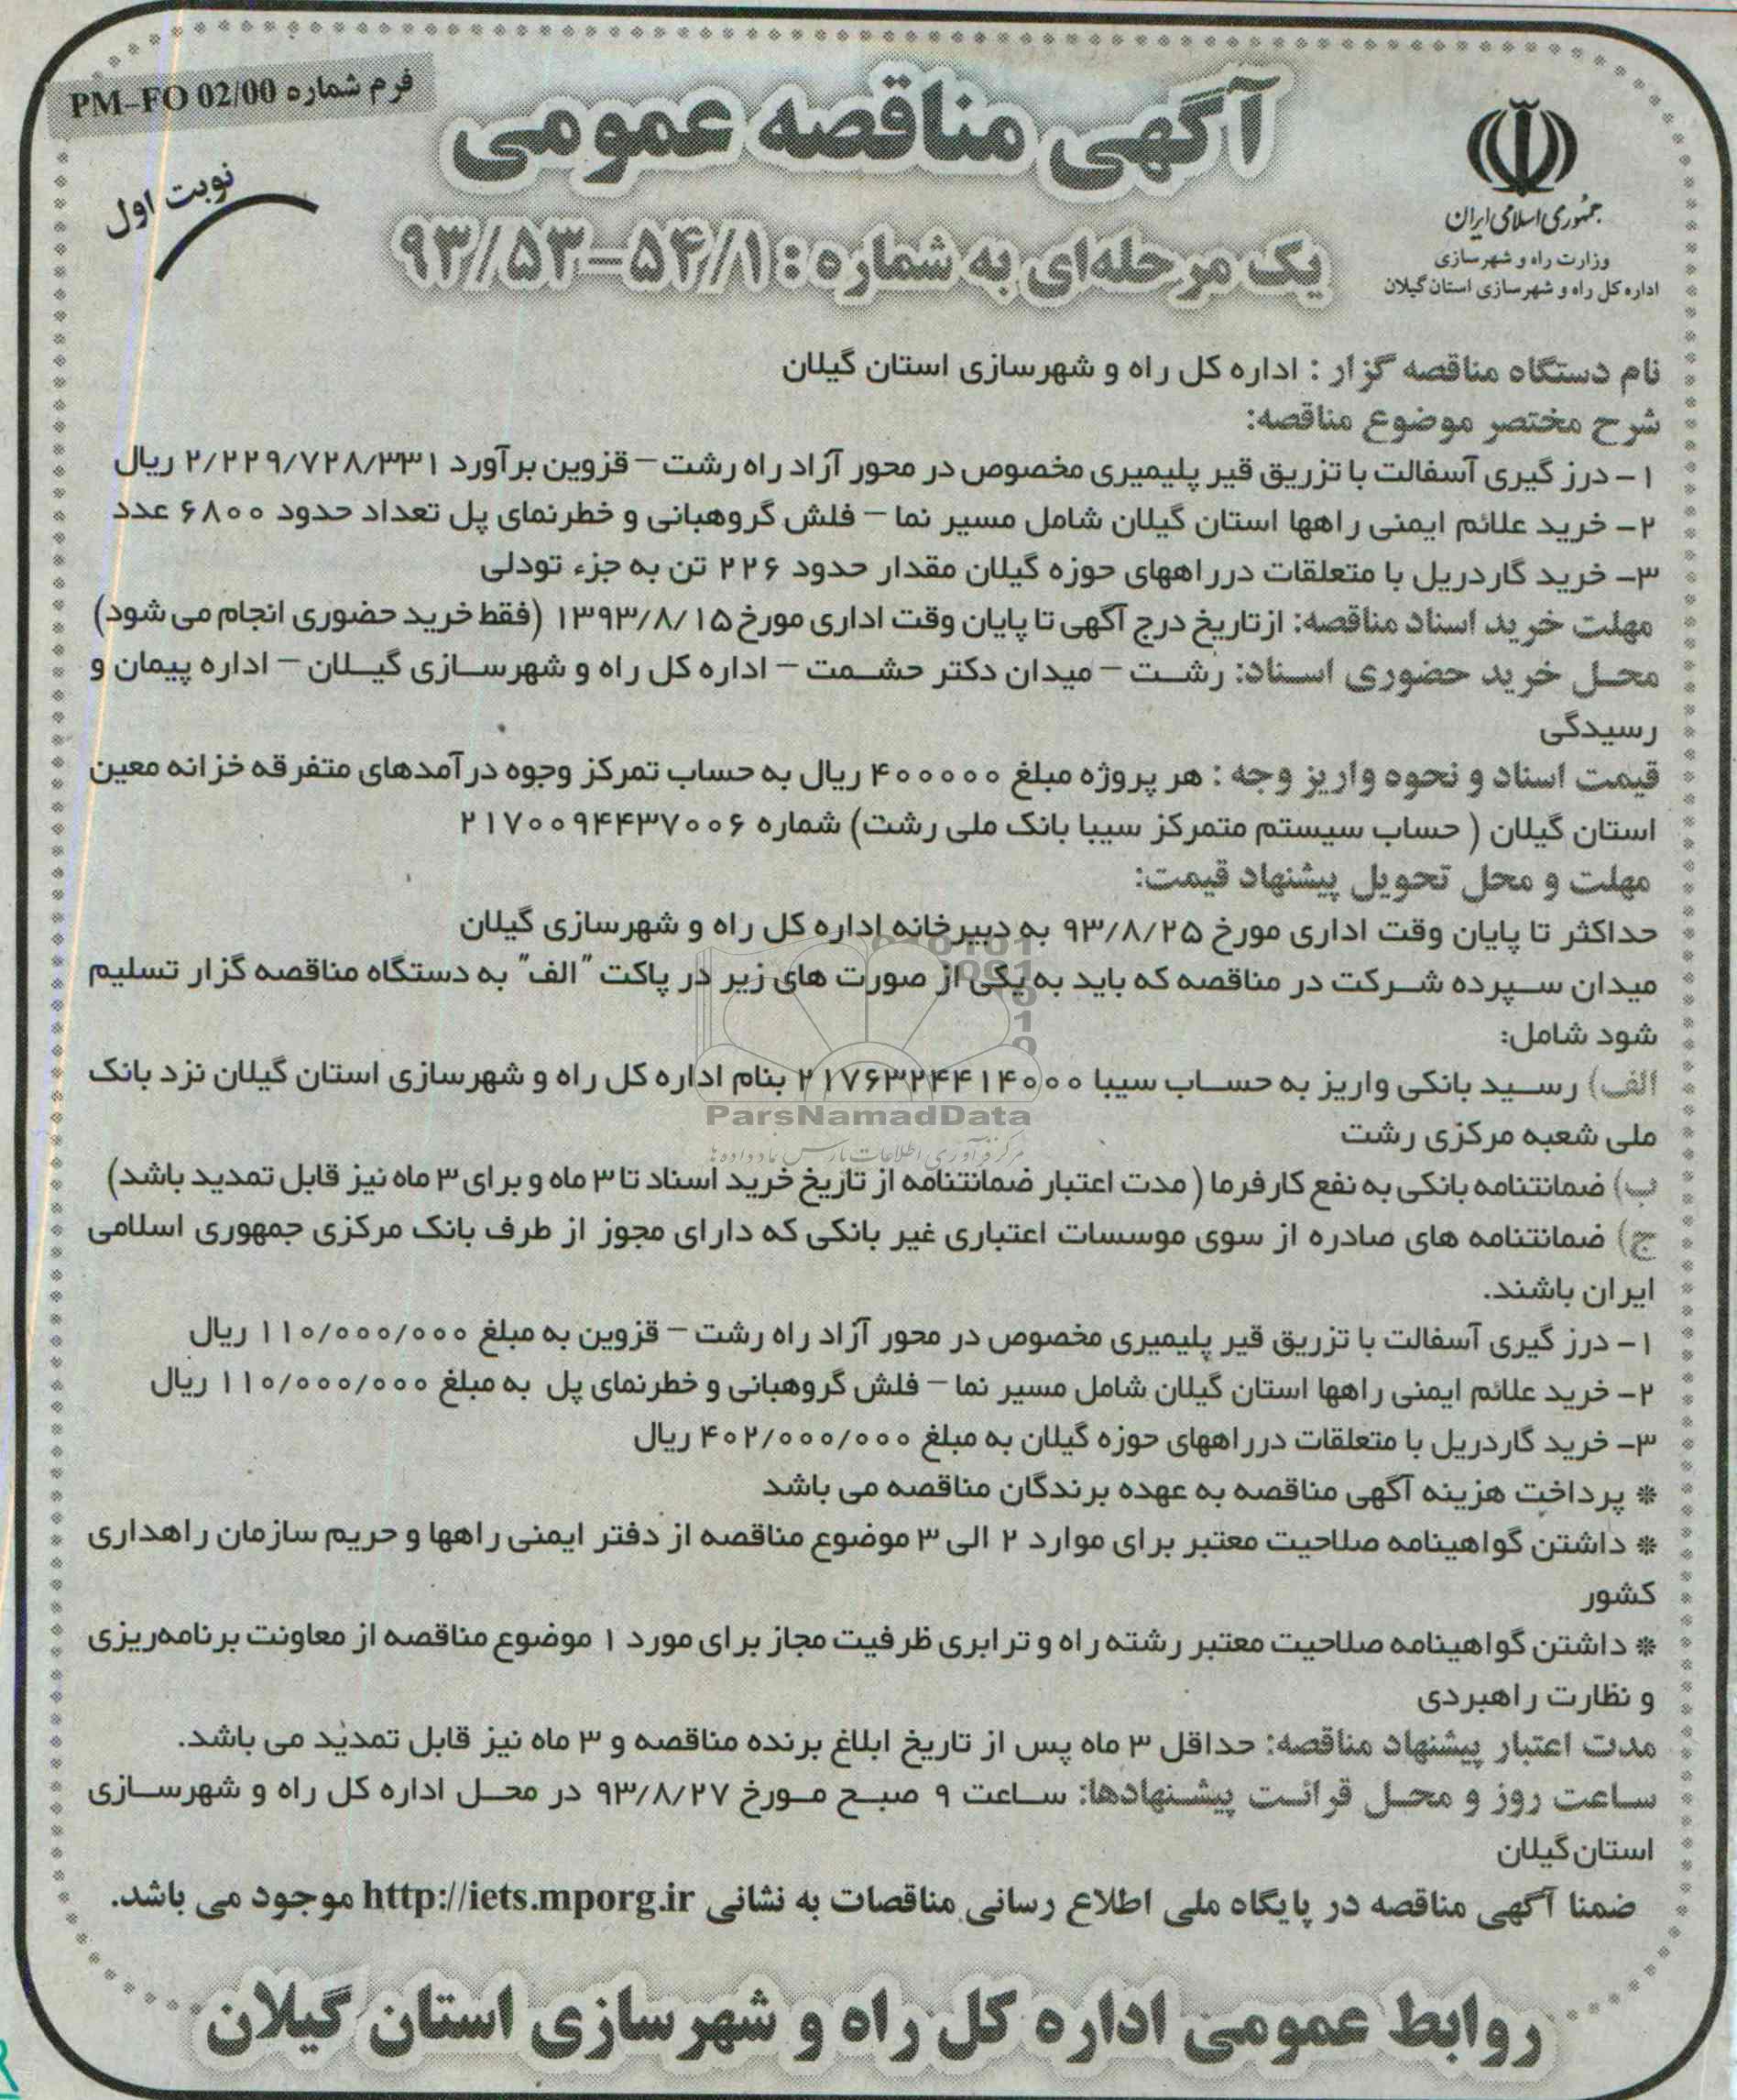 فرم شماره PM-FO 02/00
آگهی مناقصه عمومی
نوبت اول
یک مرحله‌ای به شماره: ۵۴/۱-۹۳/۵۳
جمهوری اسلامی ایران
وزارت راه و شهرسازی
اداره کل راه و شهرسازی استان گیلان
نام دستگاه مناقصه گزار : اداره کل راه و شهرسازی استان گیلان
شرح مختصر موضوع مناقصه:
۱- درز گیری آسفالت با تزریق قیر پلیمیری مخصوص در محور آزاد راه رشت – قزوین برآورد ۲/۲۲۹/۷۲۸/۳۳۱ ریال
۲- خرید علائم ایمنی راهها استان گیلان شامل مسیر نما – فلش گروهبانی و خطرنمای پل تعداد حدود ۶۸۰۰ عدد
۳- خرید گاردریل با متعلقات درراههای حوزه گیلان مقدار حدود ۲۲۶ تن به جزء تودلی
مهلت خرید اسناد مناقصه: ازتاریخ درج آگهی تا پایان وقت اداری مورخ ۱۳۹۳/۸/۱۵ (فقط خرید حضوری انجام می شود)
محل خرید حضوری اسناد: رشت – میدان دکتر حشمت – اداره کل راه و شهرسازی گیلان – اداره پیمان و
رسیدگی
قیمت اسناد و نحوه واریز وجه : هر پروژه مبلغ ۴۰۰۰۰۰ ریال به حساب تمرکز وجوه درآمدهای متفرقه خزانه معین
استان گیلان ( حساب سیستم متمرکز سیبا بانک ملی رشت) شماره ۲۱۷۰۰۹۴۴۳۷۰۰۶
مهلت و محل تحویل پیشنهاد قیمت:
حداکثر تا پایان وقت اداری مورخ ۹۳/۸/۲۵ به دبیرخانه اداره کل راه و شهرسازی گیلان
میدان سپرده شرکت در مناقصه که باید به یکی از صورت های زیر در پاکت "الف" به دستگاه مناقصه گزار تسلیم
شود شامل:
الف) رسید بانکی واریز به حساب سیبا ۲۱۷۶۳۲۴۴۱۴۰۰۰ بنام اداره کل راه و شهرسازی استان گیلان نزد بانک
ParsNamadData
ملی شعبه مرکزی رشت
مرکز فرآوری اطلاعات پارس نماد داده ها
ب) ضمانتنامه بانکی به نفع کارفرما ( مدت اعتبار ضمانتنامه از تاریخ خرید اسناد تا ۳ ماه و برای ۳ ماه نیز قابل تمدید باشد)
ج) ضمانتنامه های صادره از سوی موسسات اعتباری غیر بانکی که دارای مجوز از طرف بانک مرکزی جمهوری اسلامی
ایران باشند.
۱- درز گیری آسفالت با تزریق قیر پلیمیری مخصوص در محور آزاد راه رشت – قزوین به مبلغ ۱۱۰/۰۰۰/۰۰۰ ریال
۲- خرید علائم ایمنی راهها استان گیلان شامل مسیر نما – فلش گروهبانی و خطرنمای پل به مبلغ ۱۱۰/۰۰۰/۰۰۰ ریال
۳- خرید گاردریل با متعلقات درراههای حوزه گیلان به مبلغ ۴۰۲/۰۰۰/۰۰۰ ریال
* پرداخت هزینه آگهی مناقصه به عهده برندگان مناقصه می باشد
* داشتن گواهینامه صلاحیت معتبر برای موارد ۲ الی ۳ موضوع مناقصه از دفتر ایمنی راهها و حریم سازمان راهداری
کشور
* داشتن گواهینامه صلاحیت معتبر رشته راه و ترابری ظرفیت مجاز برای مورد ۱ موضوع مناقصه از معاونت برنامه‌ریزی
و نظارت راهبردی
مدت اعتبار پیشنهاد مناقصه: حداقل ۳ ماه پس از تاریخ ابلاغ برنده مناقصه و ۳ ماه نیز قابل تمدید می باشد.
ساعت روز و محل قرائت پیشنهادها: ساعت ۹ صبح مورخ ۹۳/۸/۲۷ در محل اداره کل راه و شهرسازی
استان گیلان
ضمنا آگهی مناقصه در پایگاه ملی اطلاع رسانی مناقصات به نشانی http://iets.mporg.ir موجود می باشد.
روابط عمومی اداره کل راه و شهرسازی استان گیلان